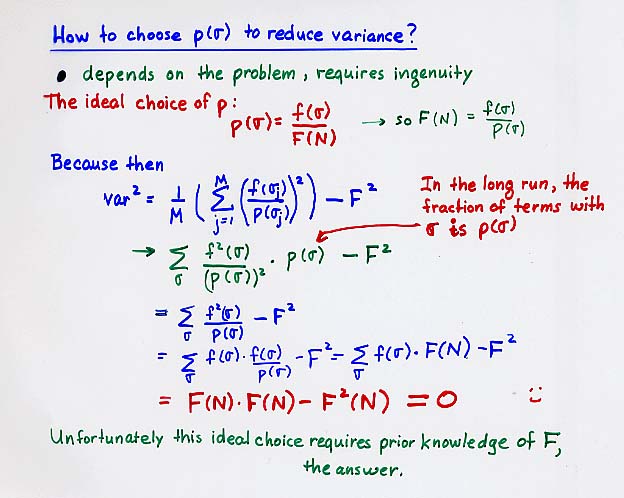 How to choose p(σ) to reduce variance?
• depends on the problem, requires ingenuity
The ideal choice of p:
p(σ) = f(σ)/F(N) → so F(N) = f(σ)/p(σ)
Because then
var² = 1/M ( ∑_{j=1}^{M} ( f(σj)/p(σj) )² ) − F²
In the long run, the
fraction of terms with
σ is p(σ)
→ ∑_σ f²(σ)/(p(σ))² · p(σ) − F²
= ∑_σ f²(σ)/p(σ) − F²
= ∑_σ f(σ) · f(σ)/p(σ) − F² = ∑_σ f(σ) · F(N) − F²
= F(N) · F(N) − F²(N) = 0 :)
Unfortunately this ideal choice requires prior knowledge of F,
the answer.